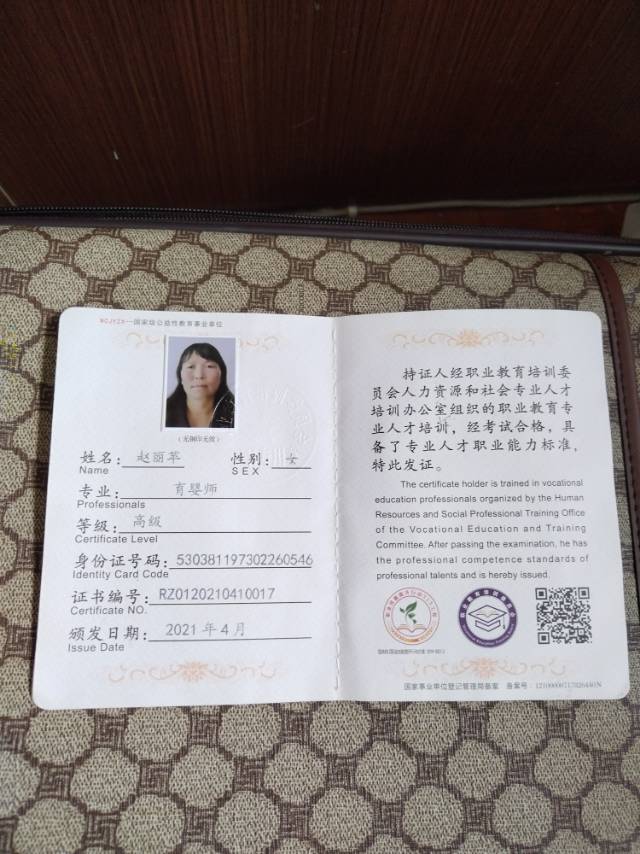 国家级公益性教育事业单位
(无钢印无效)
姓名: 赵丽苹 性别: 女
Name SEX
专业: 育婴师
Professionals
等级: 高级
Certificate Level
身份证号码: 530381197302260546
Identity Card Code
证书编号: RZ0120210410017
Certificate NO.
颁发日期: 2021 年 4 月
Issue Date
持证人经职业教育培训委
员会人力资源和社会专业人才
培训办公室组织的职业教育专
业人才培训，经考试合格，具
备了专业人才职业能力标准，
特此发证。
The certificate holder is trained in vocational
education professionals organized by the Human
Resources and Social Professional Training Office
of the Vocational Education and Training
Committee. After passing the examination, he has
the professional competence standards of
professional talents and is hereby issued.
国家事业单位登记管理局备案 备案号: